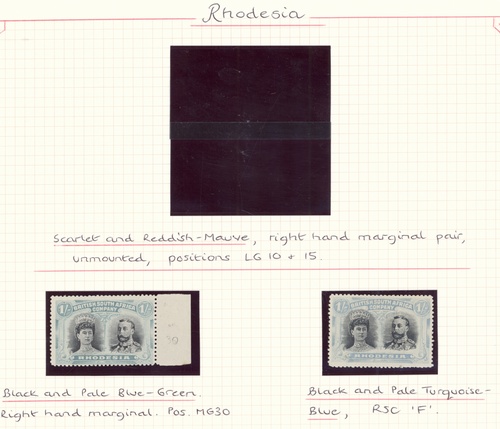 Rhodesia
Scarlet and Reddish-Mauve, right hand marginal pair,
unmounted, positions LG 10 + 15.
1/- 1/-
BRITISH SOUTH AFRICA
COMPANY
RHODESIA
30
1/- 1/-
BRITISH SOUTH AFRICA
COMPANY
RHODESIA
Black and Pale Blue-Green.
Right hand marginal. Pos. MG30
Black and Pale Turquoise-
Blue, RSC 'F'.